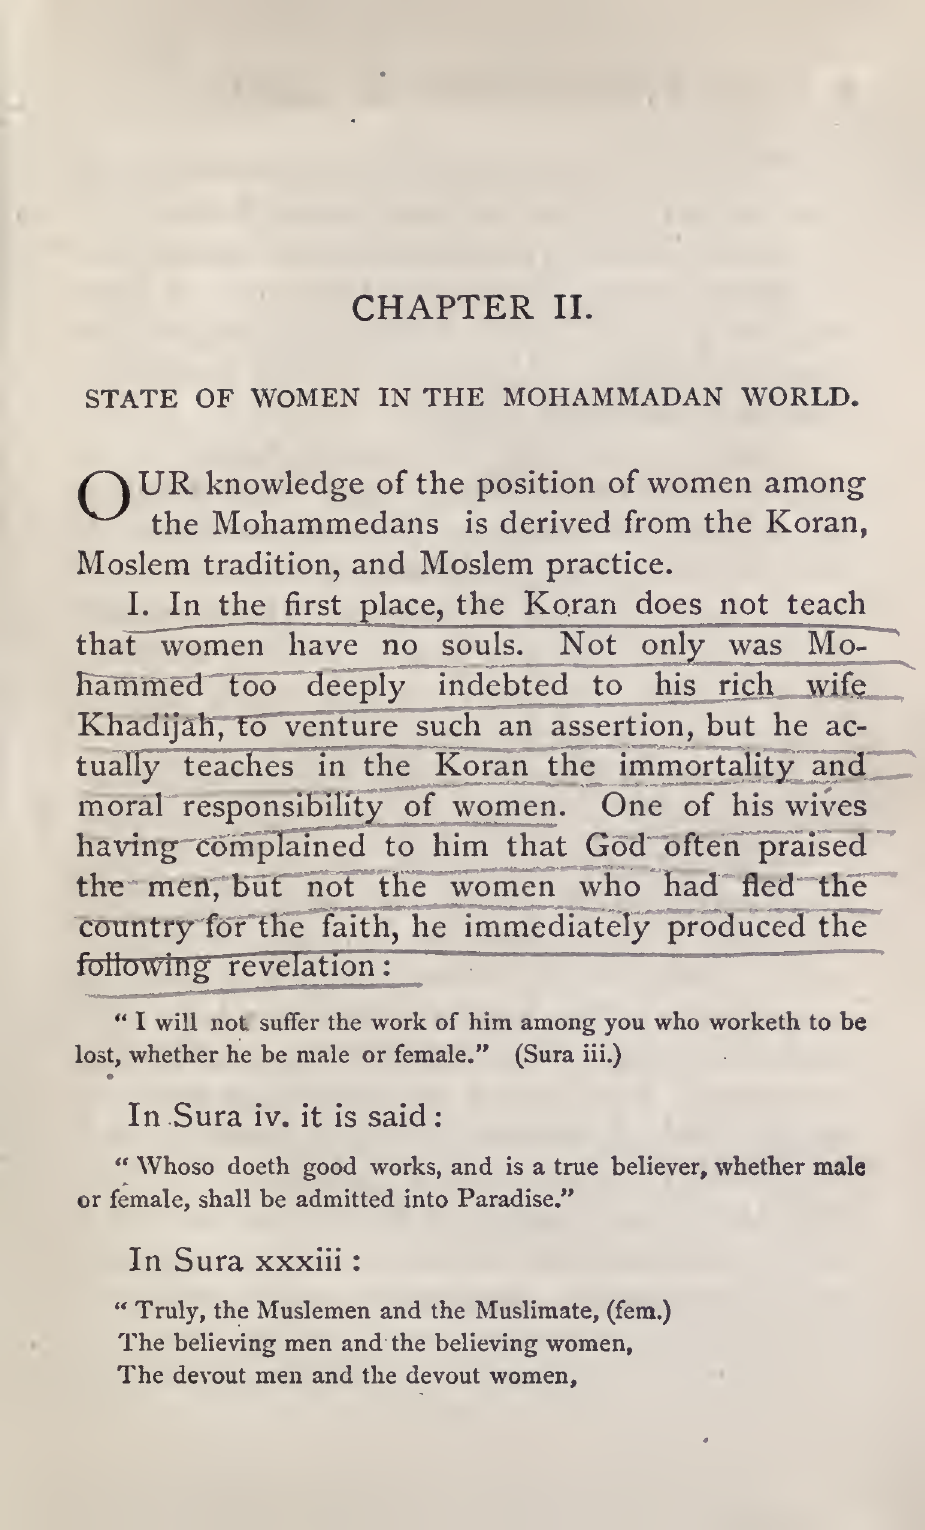 CHAPTER II.
STATE OF WOMEN IN THE MOHAMMADAN WORLD.
OUR knowledge of the position of women among
the Mohammedans is derived from the Koran,
Moslem tradition, and Moslem practice.
I. In the first place, the Koran does not teach
that women have no souls. Not only was Mo-
hammed too deeply indebted to his rich wife
Khadijah, to venture such an assertion, but he ac-
tually teaches in the Koran the immortality and
moral responsibility of women. One of his wives
having complained to him that God often praised
the men, but not the women who had fled the
country for the faith, he immediately produced the
following revelation:
“ I will not suffer the work of him among you who worketh to be
lost, whether he be male or female.” (Sura iii.)
In Sura iv. it is said:
“ Whoso doeth good works, and is a true believer, whether male
or female, shall be admitted into Paradise.”
In Sura xxxiii:
“ Truly, the Muslemen and the Muslimate, (fem.)
The believing men and the believing women,
The devout men and the devout women,